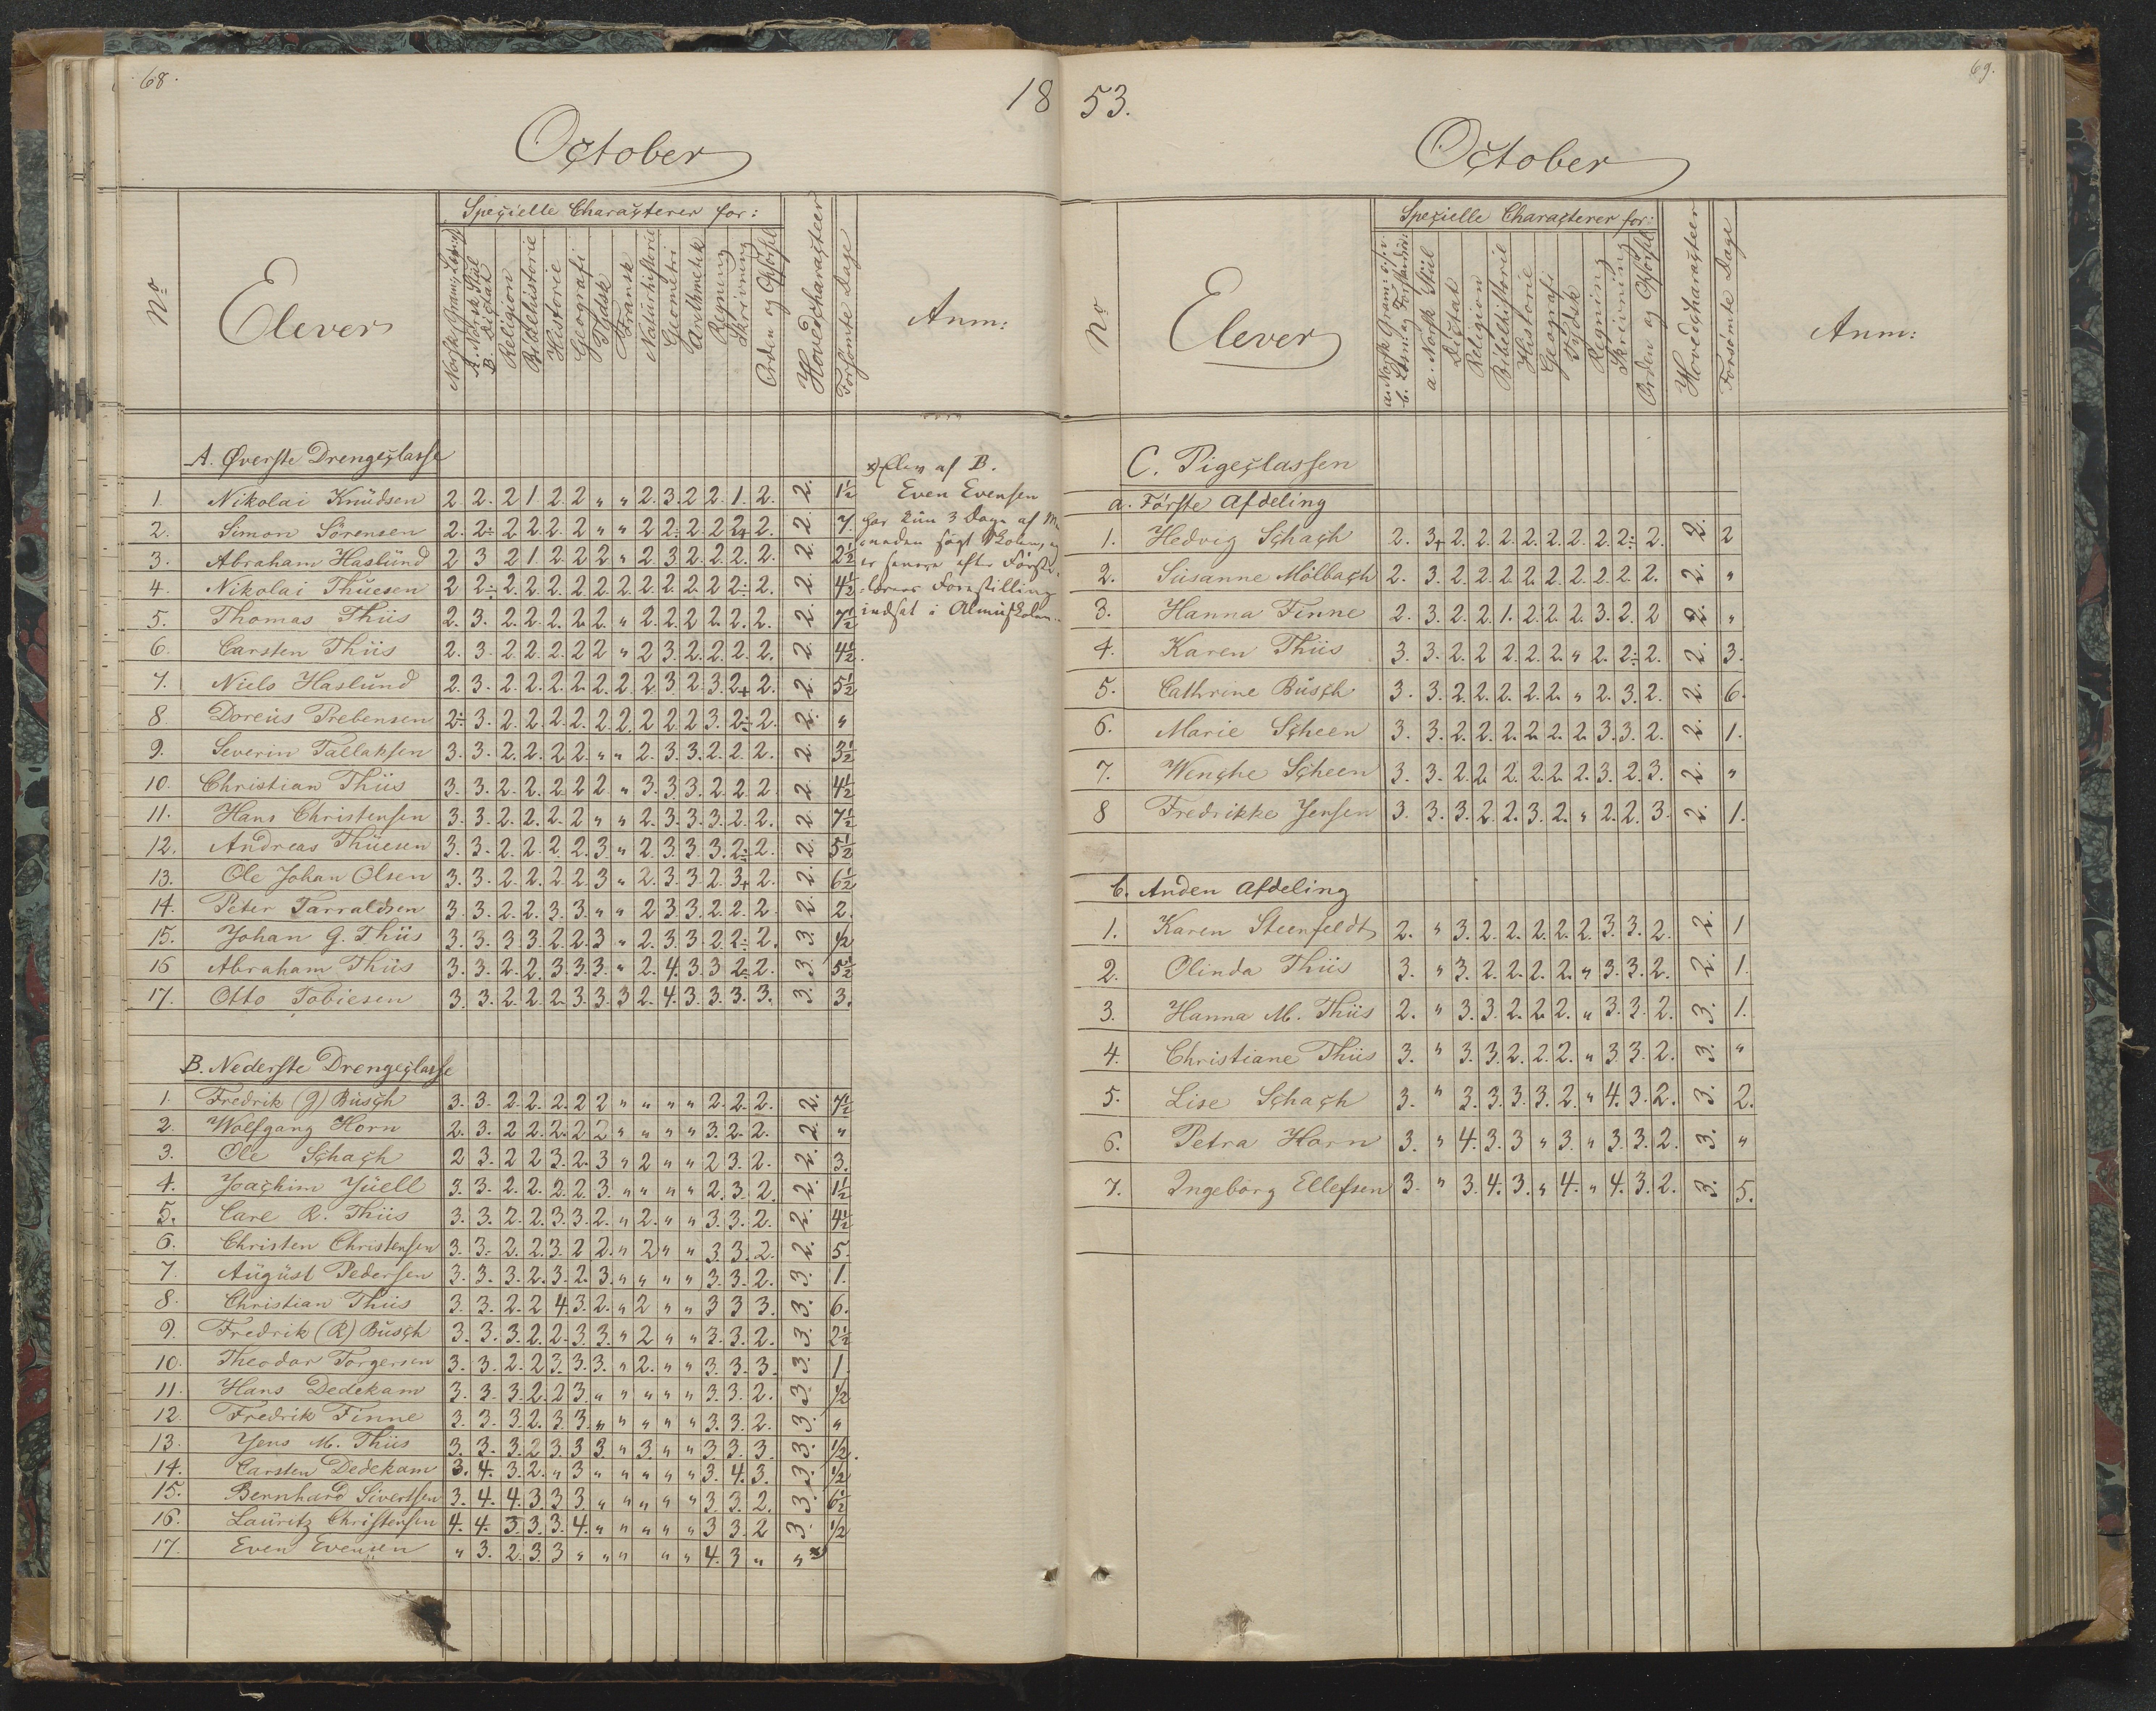 68.
18
October
No
Elever
Specielle Characterer for:
A. Norsk Stiil
B. Dictat
Religion
Bibelhistorie
Historie
Geografi
Tydsk
Fransk
Naturhistorie
Geometri
Arithmetik
Regning
Skrivning
Orden og Opførsel
Hovedcharacteer
Forsømte Dage
Anm:
A. Øverste Drengeclasse
1. Nikolai Knudsen 2 2. 2 1. 2. 2 " " 2. 3. 2 2. 1. 2. 2. 1½
2. Simon Sörensen 2. 2÷ 2 2. 2. 2 " " 2 2÷ 2. 2 2+ 2. 2. 7.
3. Abraham Haslund 2 3 2 1. 2. 2 2 " 2 3 2. 2. 2. 2. 2. 2½
4. Nikolai Thuesen 2 2÷ 2. 2. 2. 2. 2. 2. 2. 2. 2. 2 2÷ 2. 2. 4½
5. Thomas Thiis 2. 3. 2. 2. 2. 2. 2. " 2. 2. 2. 2. 2. 2. 2. 7½
6. Carsten Thiis 2. 3. 2. 2. 2. 2 2 " 2 3. 2. 2. 2. 2. 2. 4½.
7. Niels Haslund 2. 3. 2. 2. 2. 2. 2. 2. 2. 3. 2. 3. 2+ 2. 2. 5½
8 Doreus Prebensen 2÷ 3. 2. 2. 2. 2. 2. 2. 2 2. 2 3. 2÷ 2. 2. "
9. Severin Tallaksen 3. 3. 2. 2. 2. 2. " " 2. 3. 3. 2. 2. 2. 2. 3½
10. Christian Thiis 3. 3. 2. 2. 2. 2 2 " 3. 3. 3. 2 2 2 2. 4½
11. Hans Christensen 3. 3. 2. 2. 2. 2 " " 2. 3. 3. 3. 2. 2. 2. 7½
12. Andreas Thuesen 3. 3. 2. 2. 2. 2. 3. " 2. 3. 3. 3. 2÷ 2. 2. 5½
13. Ole Johan Olsen 3. 3. 2. 2. 2. 2. 3 " 2. 3. 3. 2. 3+ 2. 2. 6½
14. Peter Tarraldsen 3. 3. 2. 2. 3. 3. " " 2 3. 3. 2. 2. 2. 2. 2.
15. Johan G. Thiis 3. 3. 3. 3. 2. 2. 3 " 2. 3. 3. 2. 2÷ 2. 3. ½
16 Abraham Thiis 3. 3. 2. 2. 3. 3. 3. " 2. 4. 3. 3 2÷ 2. 3. 5½
17. Otto Tobiesen 3. 3. 2. 2. 2. 3. 3. 3 2. 4. 3. 3. 3. 3. 3. 3.
x) Elev af B.
Even Evensen
har kun 3 Dage af Ma
aneden søgt Skolen, og
er senere efter Første-
lærers Forestilling
indsat i Almuskolen.
B. Nederste Drengeclasse
1. Fredrik (G) Busch 3. 3. 2. 2. 2. 2 2 " " " " 2. 2. 2. 2. 7½
2. Wolfgang Horn 2. 3. 2 2. 2. 2 2 " " " " 3. 2. 2. 2. "
3. Ole Schach 2 3. 2 2 3. 2. 3 " 2 " " 2 3. 2. 2. 3.
4. Joachim Juell 3. 3. 2. 2. 2. 2. 3. " " " " 2. 3. 2. 2. 1½
5. Carl R. Thiis 3. 3. 2. 2. 3. 3. 2. " 2. " " 3. 3. 2. 2. 4½
6. Christen Christensen 3. 3. 2. 2. 3. 2 2. " 2 " " 3. 3. 2. 2. 5.
7. August Pedersen 3. 3. 3. 2. 3. 2. 3. " " " " 3. 3. 2. 3. 1.
8. Christian Thiis 3. 3. 2. 2 4. 3. 2. " 2 " " 3 3 3. 3. 6.
9. Fredrik (R) Busch 3. 3. 3. 2 2. 3. 3. " 2 " " 3. 3. 2. 3. 2½
10. Theodor Torgersen 3. 3. 2. 2 3. 3. 3. " 2. " " 3. 3. 3. 3. 1
11. Hans Dedekam 3. 3. 3. 2. 2 3. " " " " " 3. 3. 2. 3. ½
12. Fredrik Finne 3. 3. 3. 2. 3 3. " " " " " 3. 3. 2. 3. "
13. Jens M. Thiis 3. 3. 3. 2 3. 3 3. " 3. " " 3. 3. 3. 3. ½.
14. Carsten Dedekam 3. 4. 3. 2. " 3 " " " " " 3. 4. 3. 3. ½
15. Bernhard Sivertsen 3. 4. 4. 3. 3 3. " " " " " 3. 3. 2. 3. 6½
16. Lauritz Christensen 4. 4. 3. 3. 3. 4. " " " " " 3 3. 2 3. ½
17. Even Evensen " 3. 2. 3. 3 " " " " " 4. 3 " " x)
69.
53.
October
No
Elever
Specielle Characterer for:
a. Norsk Gram:
a. Norsk Stiil
Dictat
Religion
Bibelhistorie
Historie
Geografi
Tydsk
Regning
Skrivning
Orden og Opførsel
Hovedcharacteer
Forsømte Dage
Anm:
C. Pigeclassen
a. Første Afdeling
1. Hedvig Schach 2. 3+ 2. 2. 2. 2. 2. 2. 2. 2÷ 2. 2. 2
2. Susanne Mölbach 2. 3. 2. 2. 2. 2. 2. 2. 2. 2. 2. 2. "
3. Hanna Finne 2. 3. 2. 2. 1. 2. 2. 2. 3. 2. 2 2. "
4. Karen Thiis 3. 3. 2. 2 2. 2. 2. " 2. 2÷ 2. 2. 3.
5. Cathrine Busch 3. 3. 2. 2. 2. 2. 2. " 2. 3. 2. 2. 6.
6. Marie Scheen 3. 3. 2. 2. 2. 2. 2. 2. 3. 3. 2. 2. 1.
7. Wenche Scheen 3. 3. 2. 2. 2. 2. 2. 2. 3. 2. 3. 2. "
8 Fredrikke Jensen 3. 3. 3. 2. 2. 3. 2. " 2. 2. 3. 2. 1.
b. Anden Afdeling
1. Karen Steenfeldt 2. " 3. 2. 2. 2. 2. 2. 3. 3. 2. 2. 1
2. Olinda Thiis 3. " 3. 2. 2. 2. 2. " 3. 3. 2. 2. 1.
3. Hanna M. Thiis 2. " 3. 3. 2. 2. 2. " 3. 3. 2. 3. 1.
4. Christiane Thiis 3. " 3. 3. 2. 2. 2. " 3. 3. 2. 3. "
5. Lise Schach 3. " 3. 3. 3. 3. 2. " 4. 3. 2. 3. 2.
6. Petra Horn 3. " 4. 3. 3 " 3. " 3. 3. 2. 3. "
7. Ingeborg Ellefsen 3. " 3. 4. 3. " 4. " 4. 3. 2. 3. 5.